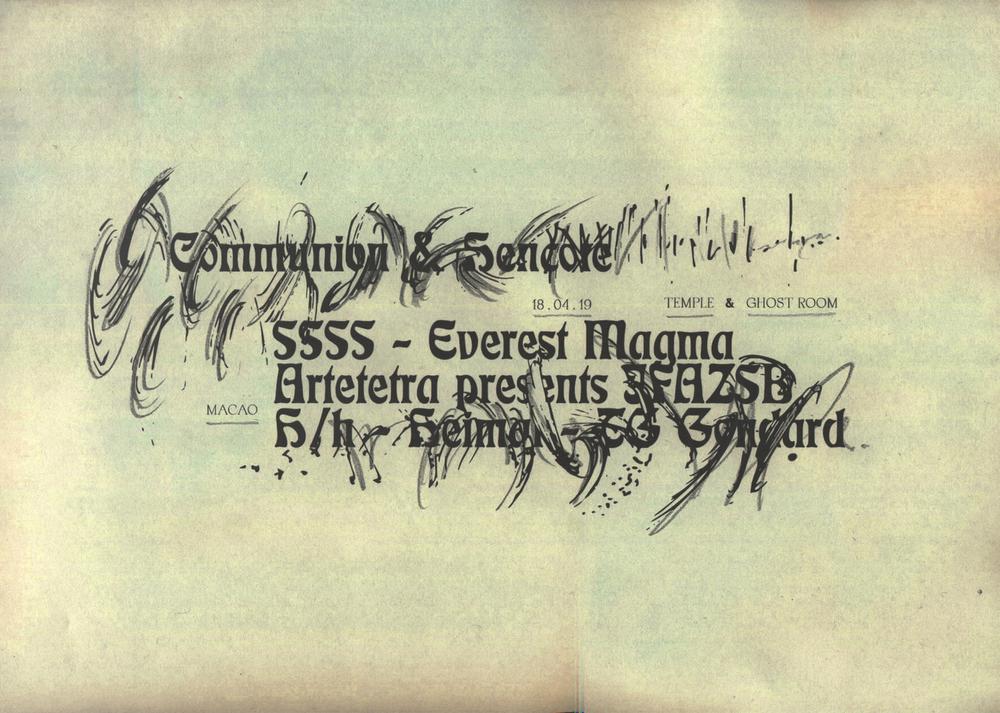 Communion & Sencote
18.04.19
TEMPLE & GHOST ROOM
SSSS - Everest Magma
Artetetra presents SFAZSB
MACAO
H/h - Heimat - TG Gondard